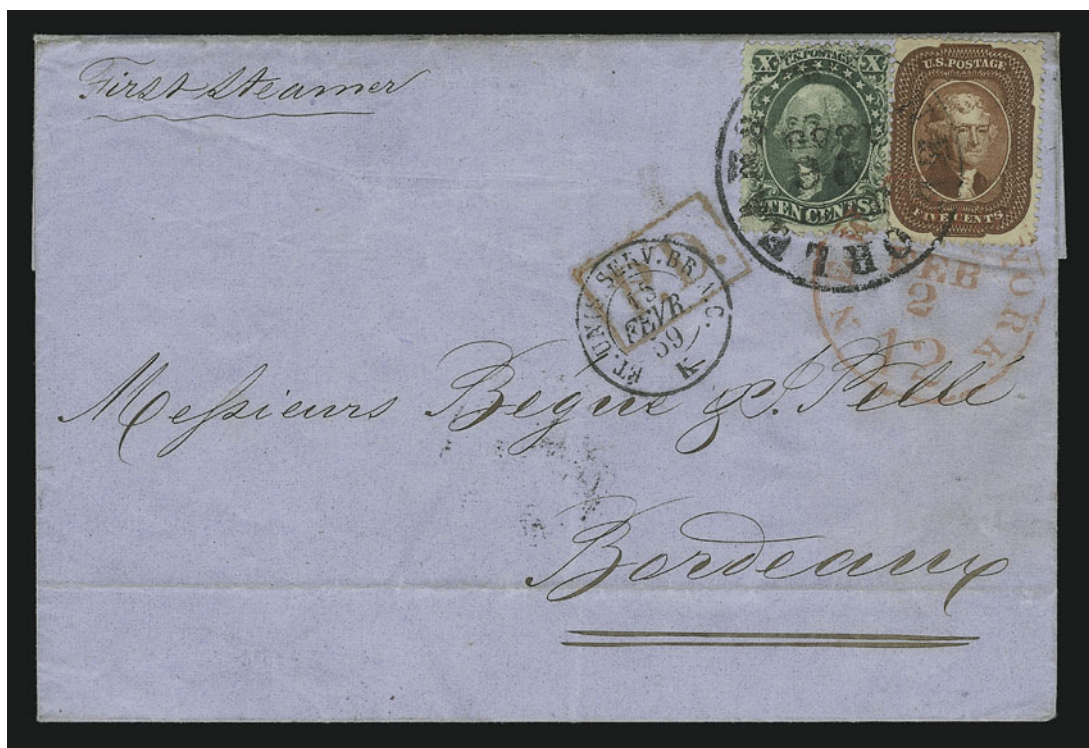 First Steamer
X U.S. POSTAGE X
TEN CENTS.
U.S. POSTAGE
FIVE CENTS
ORLE
P.D.
ET. UNIS SERV. BR. A.C.
15
FEVR
59
K
NEW YORK
FEB
2
12
Messieurs Bégué & Pellé
Bordeaux